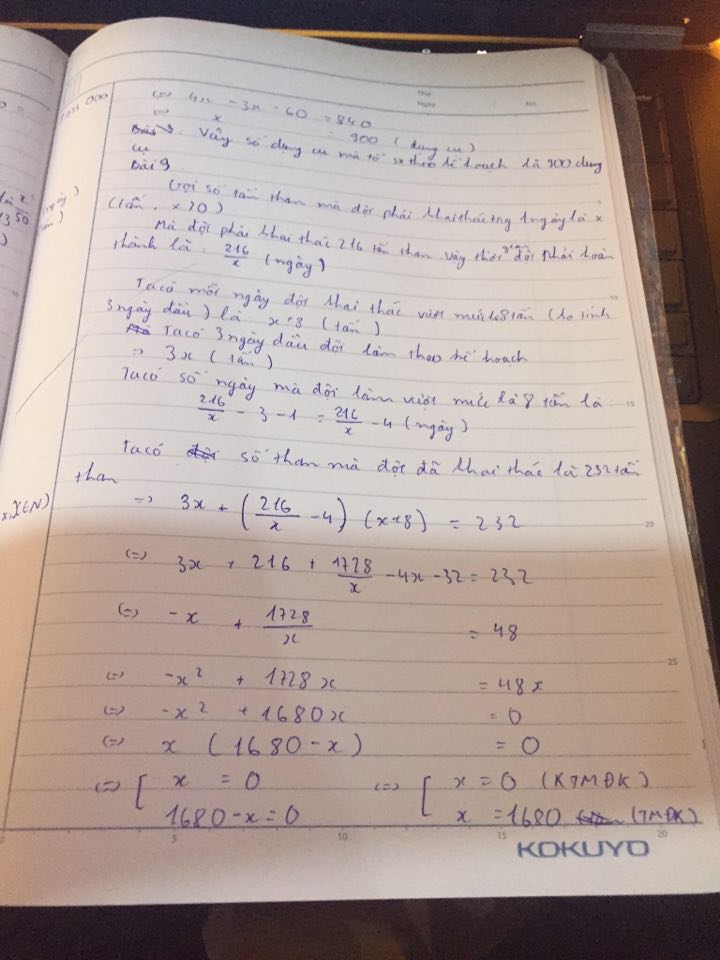 (=) 4x - 3x - 60 = 840
(=) x = 900 (dụng cụ)
Vậy số dụng cụ mà tổ sx theo kế hoạch là 900 dụng
cụ
Bài 9
Gọi số tấn than mà đội phải khai thác trg 1 ngày là x
(tấn, x > 0)
Mà đội phải khai thác 216 tấn than. Vậy thời gian đội phải hoàn
thành là : 216/x (ngày)
Ta có mỗi ngày đội khai thác vượt mức 8 tấn (ko tính
3 ngày đầu) là x + 8 (tấn)
Ta có 3 ngày đầu đội làm theo kế hoạch
=> 3x (tấn)
Ta có số ngày mà đội làm vượt mức là 8 tấn là
216/x - 3 - 1 = 216/x - 4 (ngày)
Ta có số than mà đội đã khai thác là 232 tấn
than
=> 3x + (216/x - 4) (x + 8) = 232
(=) 3x + 216 + 1728/x - 4x - 32 = 232
(=) -x + 1728/x = 48
(=) -x² + 1728x = 48x
(=) -x² + 1680x = 0
(=) x (1680 - x) = 0
(=) [ x = 0 (=) [ x = 0 (KTMĐK)
1680 - x = 0 x = 1680 (TMĐK)
KOKUYO